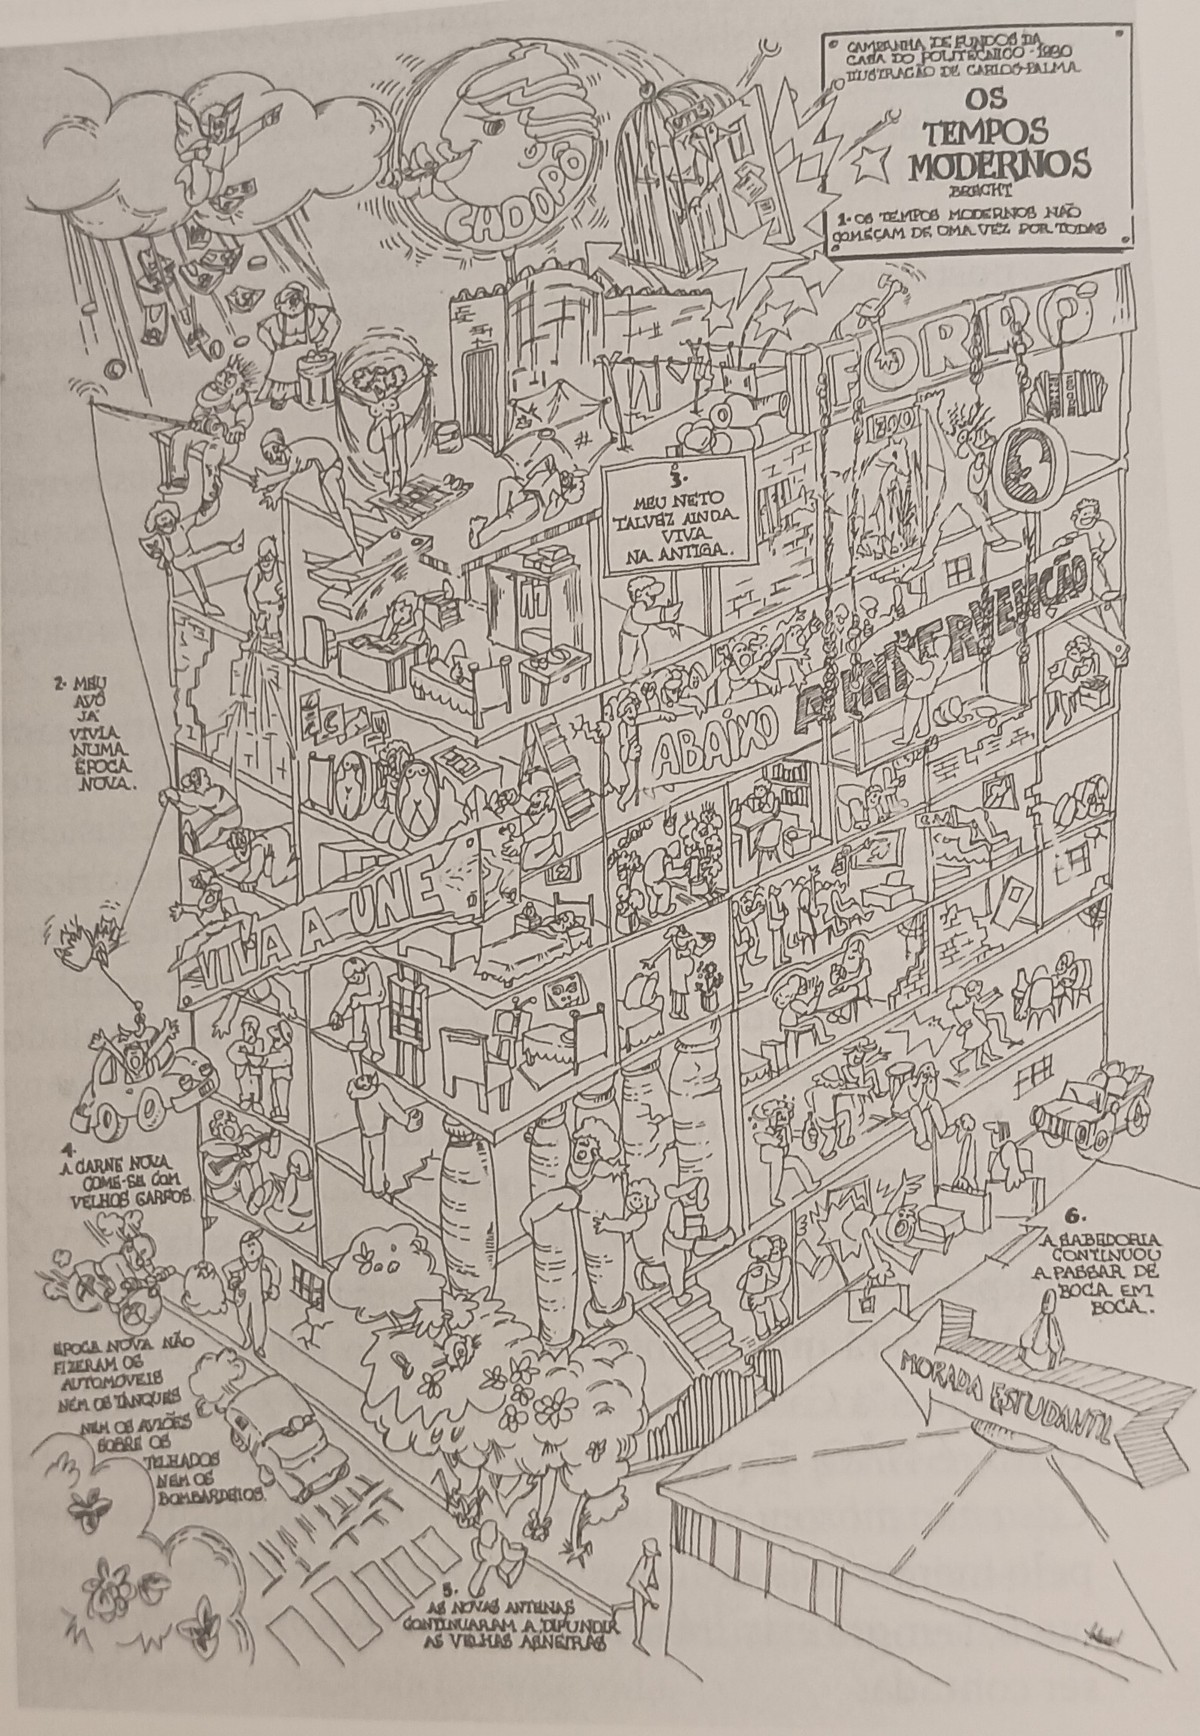 CAMPANHA DE FUNDOS DA
CASA DO POLITÉCNICO - 1980
ILUSTRAÇÃO DE CARLOS PALMA
OS
TEMPOS
MODERNOS
BRECHT
1- OS TEMPOS MODERNOS NÃO
COMEÇAM DE UMA VEZ POR TODAS
CADOPÔ
FORRÓ
ZOO
3.
MEU NETO
TALVEZ AINDA
VIVA
NA ANTIGA..
ABAIXO A INTERVENÇÃO
2- MEU
AVÔ
JÁ
VIVIA
NUMA
ÉPOCA
NOVA.
VIVA A UNE
4.
A CARNE NOVA
COME-SE COM
VELHOS GARFOS.
ÉPOCA NOVA NÃO
FIZERAM OS
AUTOMÓVEIS
NEM OS TANQUES
NEM OS AVIÕES
SOBRE OS
TELHADOS
NEM OS
BOMBARDEIOS.
5.
AS NOVAS ANTENAS
CONTINUARAM A DIFUNDIR
AS VELHAS ASNEIRAS
6.
A SABEDORIA
CONTINUOU
A PASSAR DE
BOCA EM
BOCA..
MORADA ESTUDANTIL